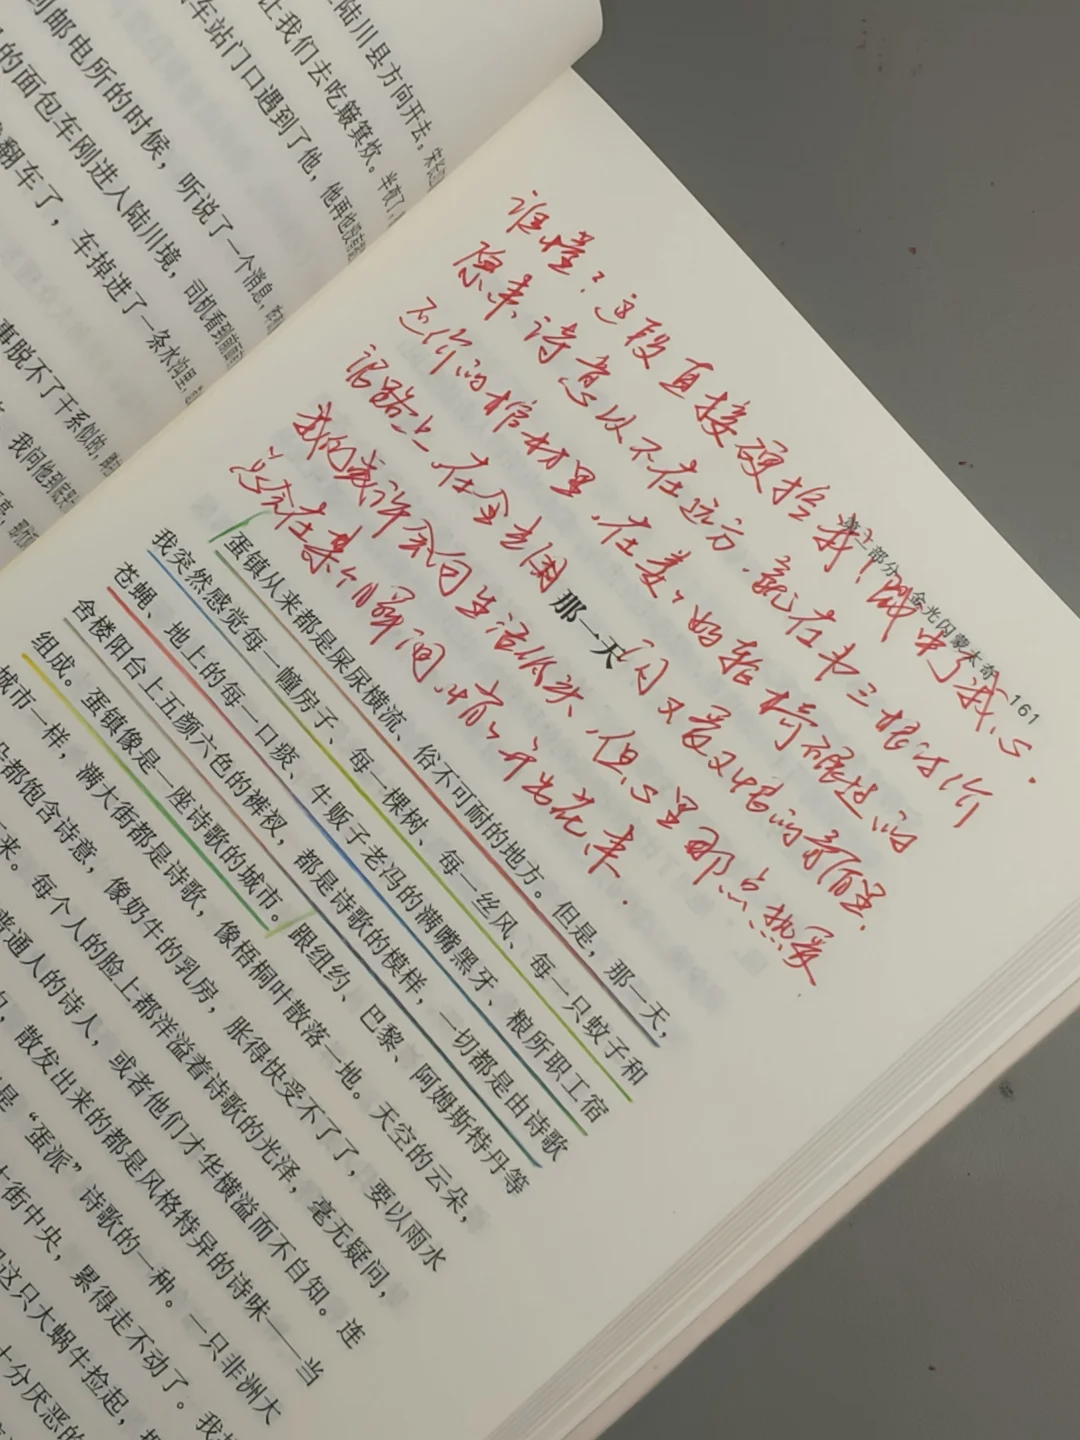 陆川县方向开去，宋长江
让我们去吃簸箕炊。半夜了，
车站门口遇到了他，他再也没走
到邮电所的时候，听说了一个消息，
的面包车刚进入陆川境，司机看到前面
翻车了，车掉进了一条水沟里，
事脱不了干系似的，
我问他到底
第二部分 金光闪蒙太奇 161
谁懂？这段直接硬控我！砸中了我心.
原来诗意从不在远方.就在韦三根讨价
还价的棺材里.在姜姜的轮椅碾过的
泥路上.在金光闪闪又爱又恨的颜值里.
我们或许会向生活低头.但心里那点热爱
总会在某个瞬间.悄悄开出花来.
那一天
蛋镇从来都是屎尿横流、俗不可耐的地方。但是，那一天，
我突然感觉每一幢房子、每一棵树、每一丝风、每一只蚊子和
苍蝇、地上的每一口痰、牛贩子老冯的满嘴黑牙、粮所职工宿
舍楼阳台上五颜六色的裤衩，都是诗歌的模样，一切都是由诗歌
组成。蛋镇像是一座诗歌的城市。跟纽约、巴黎、阿姆斯特丹等
城市一样，满大街都是诗歌，像梧桐叶散落一地。天空的云朵，
朵都饱含诗意，像奶牛的乳房，胀得快受不了了，要以雨水
来。每个人的脸上都洋溢着诗歌的光泽，毫无疑问，
普通人的诗人，或者他们才华横溢而不自知。连
，散发出来的都是风格特异的诗味——当
是“蛋派”诗歌的一种。一只非洲大
大街中央，累得走不动了。我
这只大蜗牛捡起，
十分厌恶的